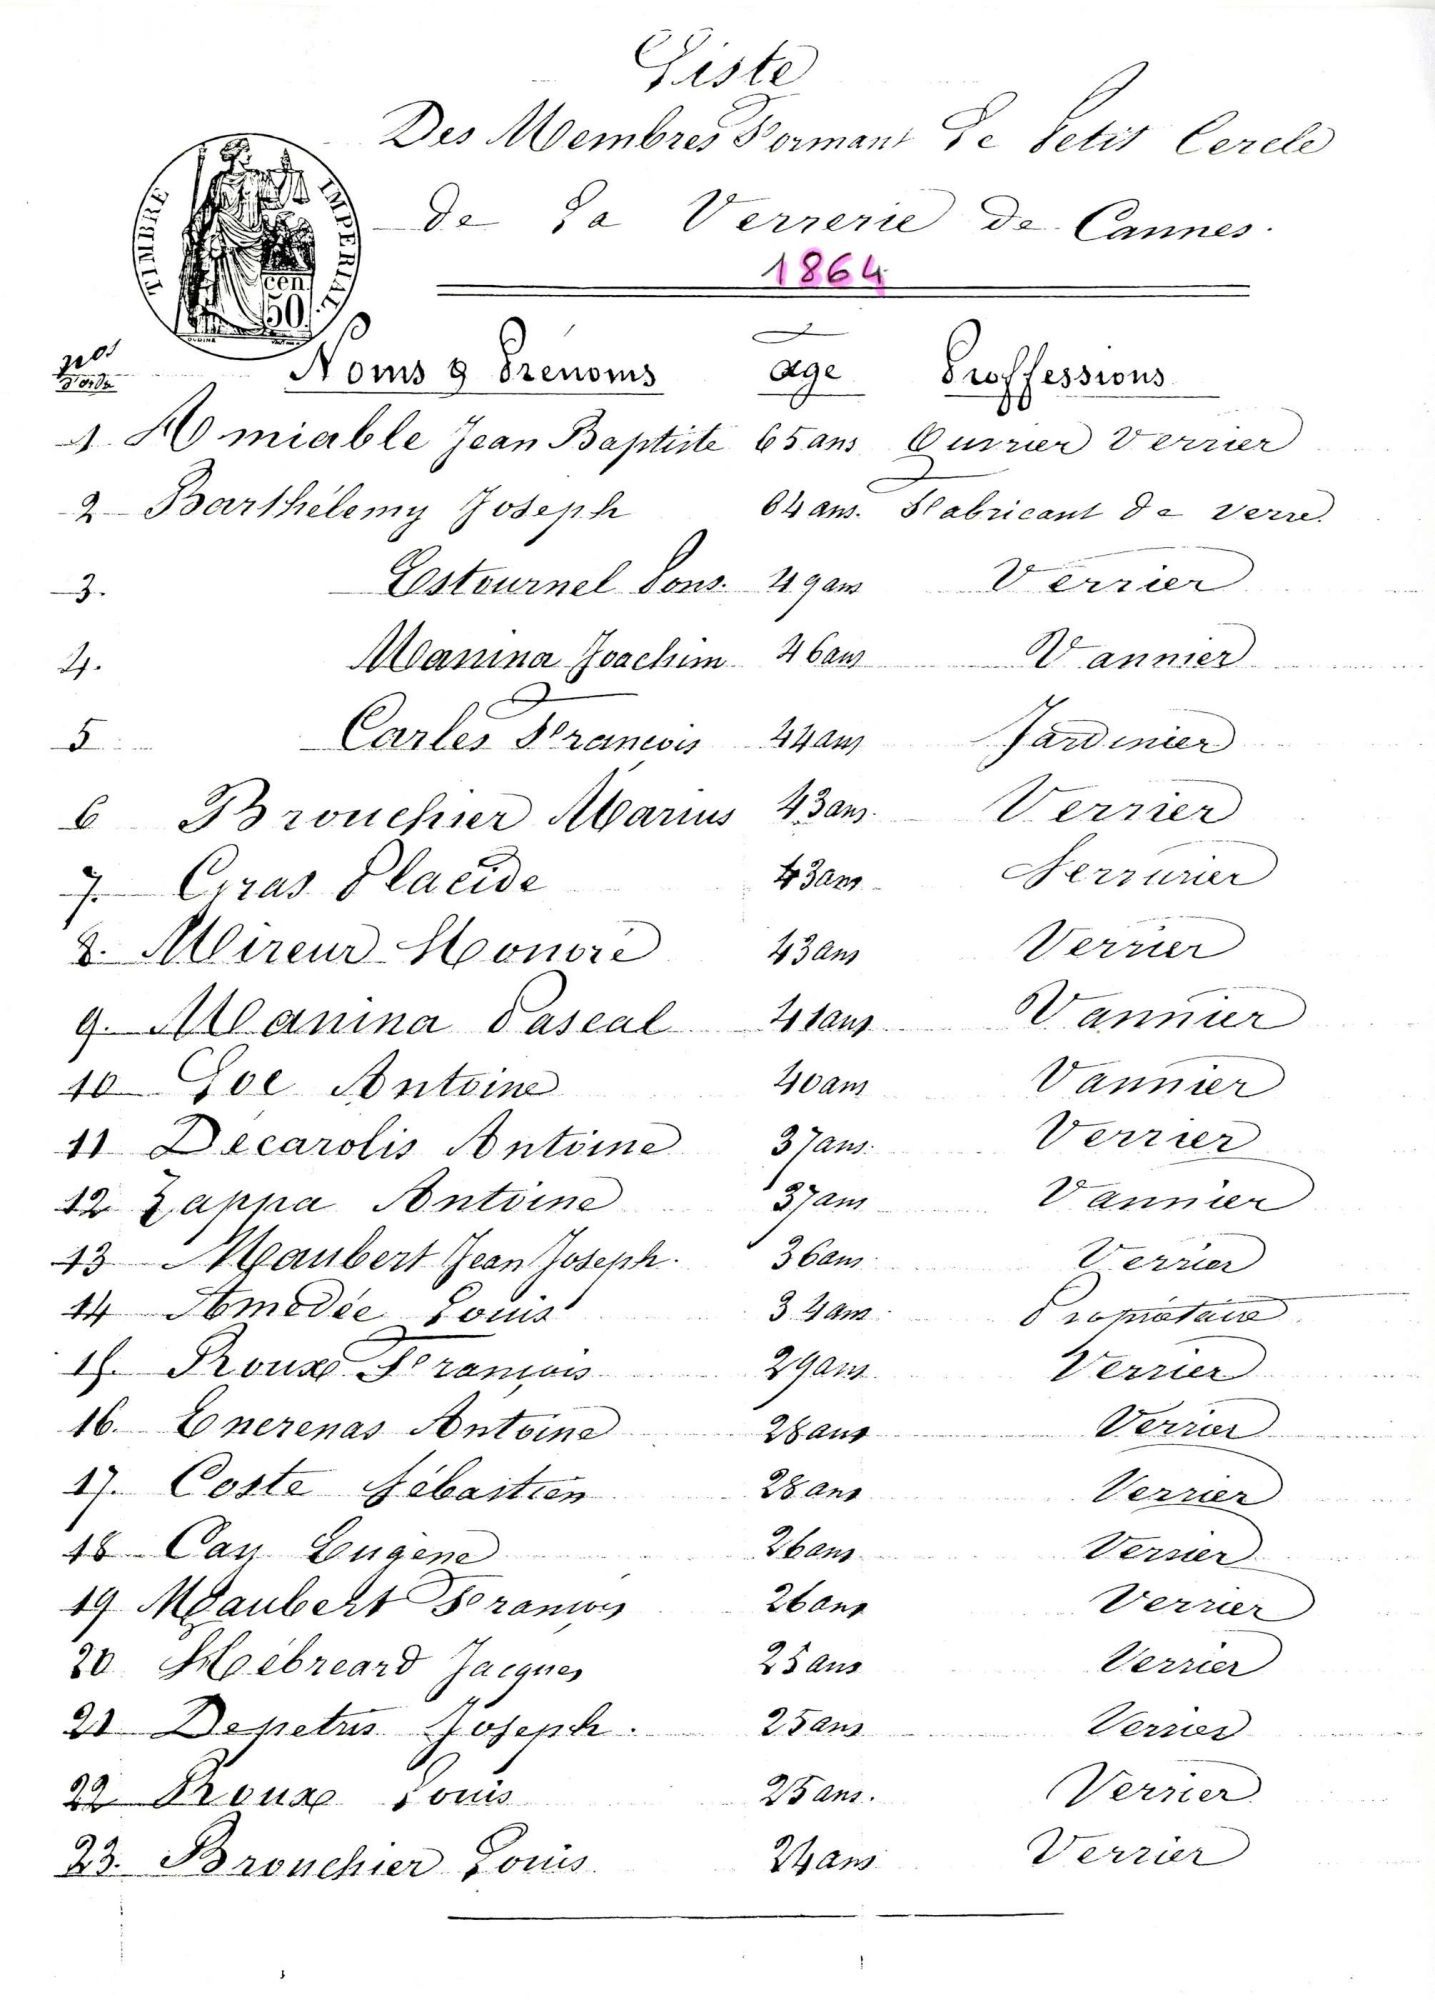 Liste
Des Membres Formant Le Petit Cercle
de La Verrerie de Cannes.
1864
TIMBRE IMPERIAL
cen.
50
nos d'ordre Noms & Prénoms age Proffessions
1 Amiable Jean Baptiste 65 ans Ouvrier Verrier
2 Barthélemy Joseph 64 ans. Fabricant de verre.
3. Estournel Pons. 49 ans Verrier
4. Manina Joachim 46 ans Vannier
5 Carles François 44 ans Jardinier
6 Brouchier Marius 43 ans. Verrier
7. Gras Placide 43 ans Serrurier
8. Mireur Honoré 43 ans Verrier
9. Manina Pascal 41 ans Vannier
10 Loe Antoine 40 ans Vannier
11 Décarolis Antoine 37 ans. Verrier
12 Zappa Antoine 37 ans Vannier
13 Maubert Jean Joseph. 36 ans Verrier
14 Amédée Louis 34 ans Propriétaire
15. Roux François 29 ans Verrier
16. Enerenas Antoine 28 ans Verrier
17. Coste Sébastien 28 ans Verrier
18 Cay Eugène 26 ans Verrier
19 Maubert François 26 ans Verrier
20 Hébréard Jacques 25 ans Verrier
21 Depetris Joseph. 25 ans Verrier
22 Roux Louis 25 ans. Verrier
23. Brouchier Louis 24 ans Verrier